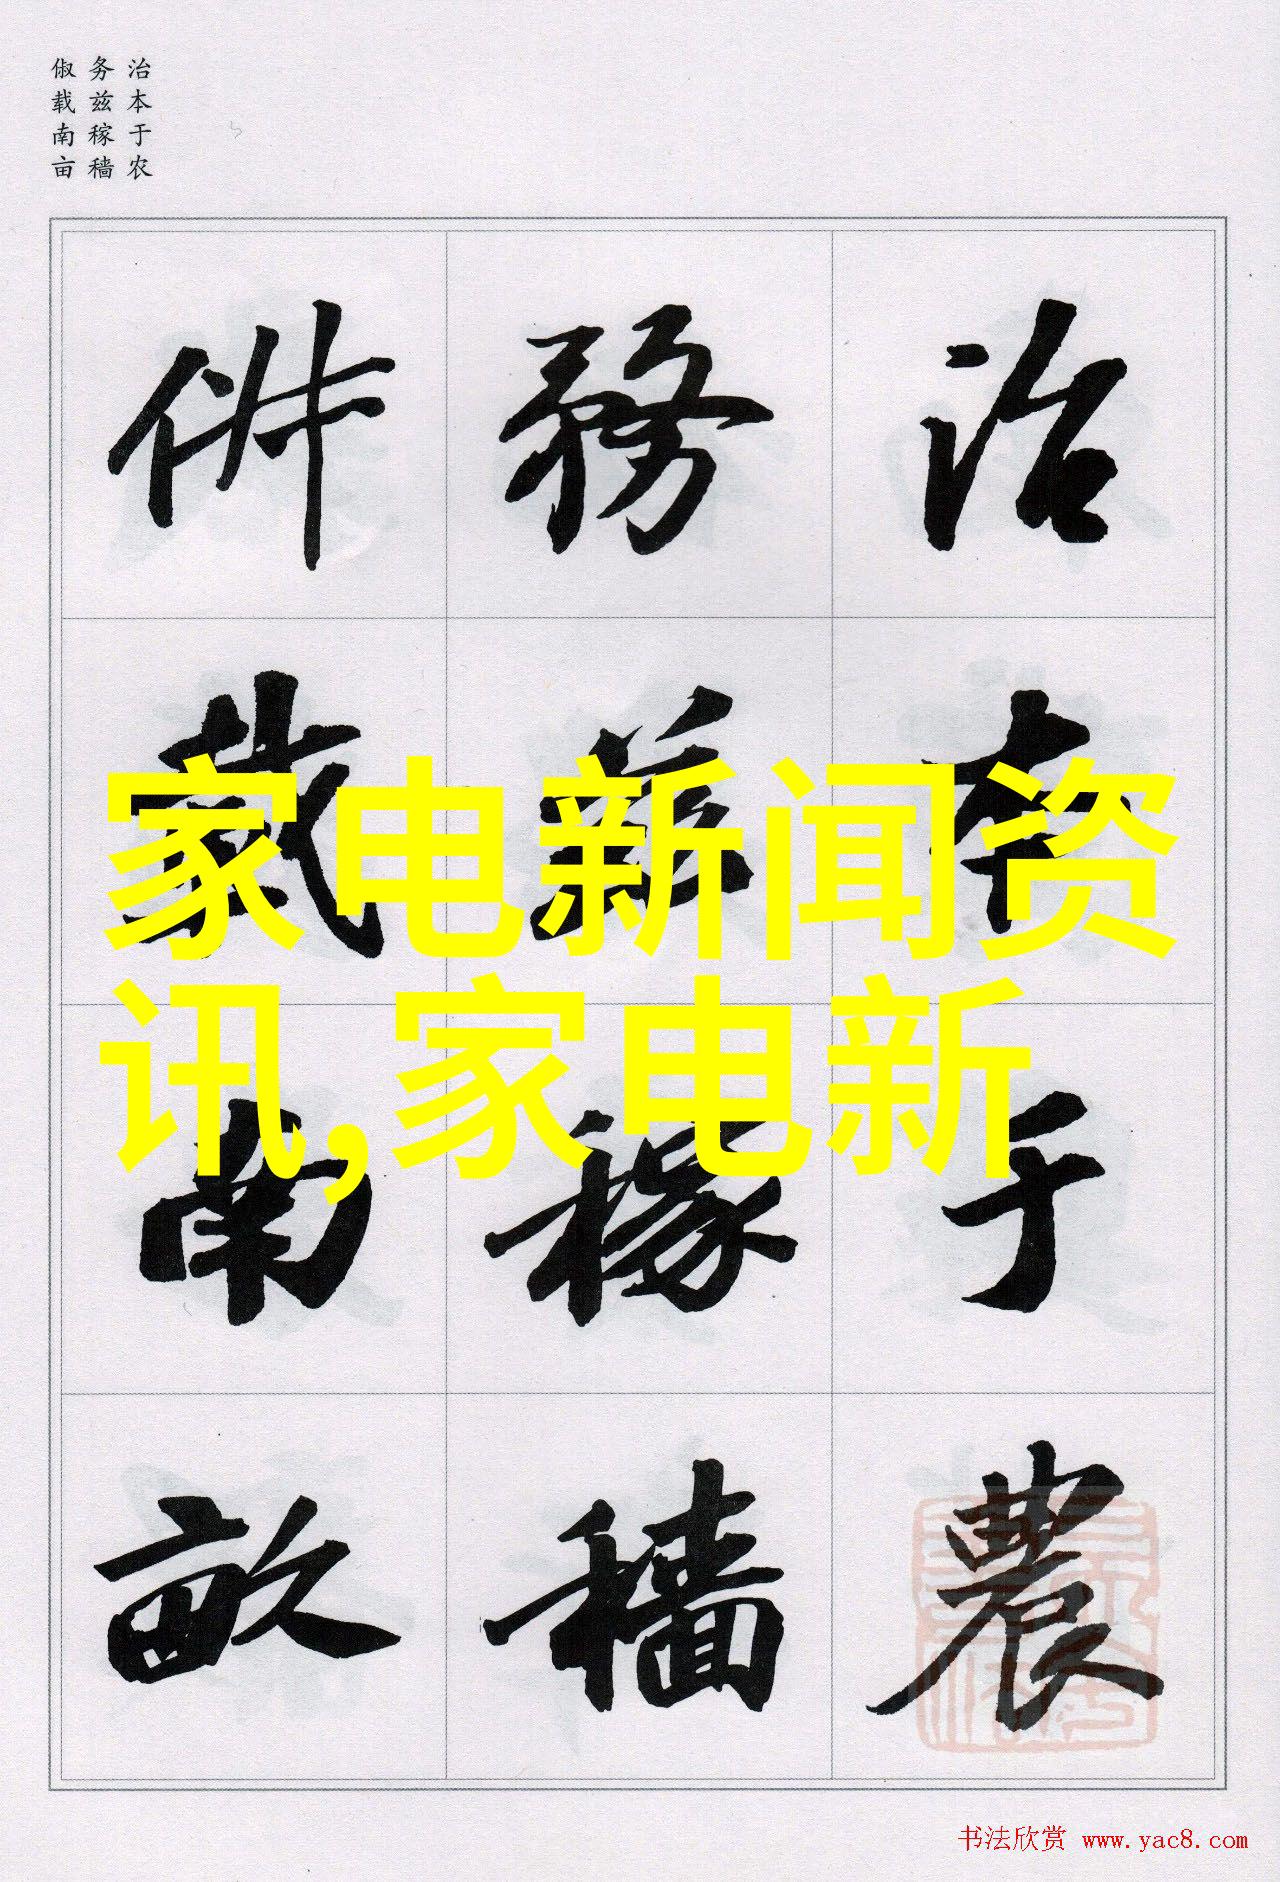 治本于农
务兹稼穑
俶载南亩
治本于農
務茲稼穡
俶載南畝
家电新闻资
讯,家电新
书法欣赏 www.yac8.com